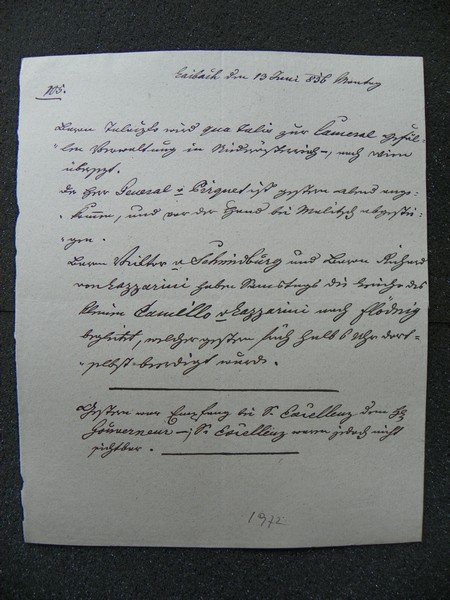 Laibach den 13 Juni 836 Montag
105.
Baron wird qua talis zur Cameral Gefäl-
len Verwaltung in Niederösterreich, nach Wien
übersezt.
Der Herr General v Pirquet ist gestern abends ange-
kommen, und vor der Hand bei Malitsch abgestie-
gen.
Baron Victor v Schmidburg und Baron Richard
von Lazzarini haben Samstags die Leiche des
kleinen Camillo v Lazzarini nach Flödnig
begleitet, welcher gestern früh halb 6 Uhr dort-
selbst beerdigt wurde.
Gestern war Empfang bei Sr Excellenz dem H
Gouverneur –; Sr Excellenz waren jedoch nicht
sichtbar.
1972